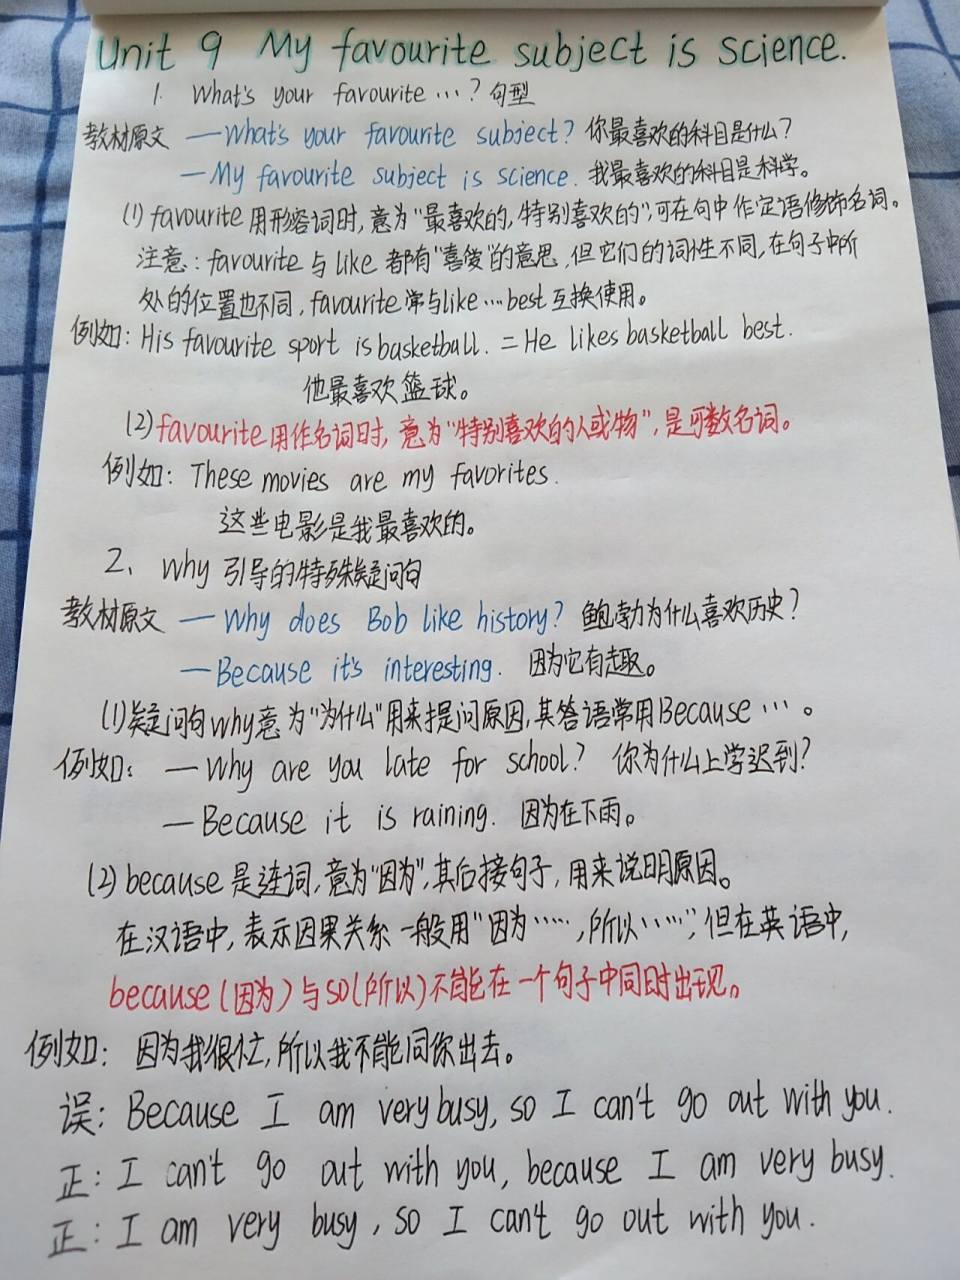 Unit 9 My favourite subject is science.
1. What's your favourite …? 句型
教材原文 —What's your favourite subject? 你最喜欢的科目是什么?
—My favourite subject is science. 我最喜欢的科目是科学。
(1) favourite 用形容词时,意为"最喜欢的,特别喜欢的",可在句中作定语修饰名词。
注意: favourite 与 like 都有"喜爱"的意思,但它们的词性不同,在句子中所
处的位置也不同, favourite 常与like …best 互换使用。
例如: His favourite sport is basketball. = He likes basketball best.
他最喜欢篮球。
(2) favourite 用作名词时,意为"特别喜欢的人或物",是可数名词。
例如: These movies are my favorites.
这些电影是我最喜欢的。
2、why 引导的特殊疑问句
教材原文 —Why does Bob like history? 鲍勃为什么喜欢历史?
—Because it's interesting. 因为它有趣。
(1)疑问句why意为"为什么"用来提问原因,其答语常用Because …。
例如: —Why are you late for school? 你为什么上学迟到?
—Because it is raining. 因为在下雨。
(2) because 是连词,意为"因为",其后接句子,用来说明原因。
在汉语中,表示因果关系一般用"因为……,所以……",但在英语中,
because(因为)与so(所以)不能在一个句子中同时出现。
例如: 因为我很忙,所以我不能同你出去。
误: Because I am very busy, so I can't go out with you.
正: I can't go out with you, because I am very busy.
正: I am very busy, so I can't go out with you.